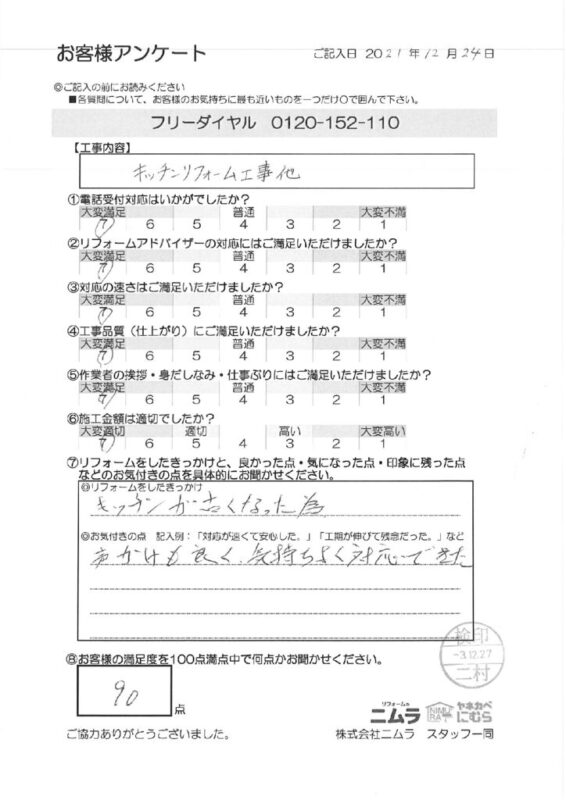 お客様アンケート
ご記入日 2021年 12月 24日
◎ご記入の前にお読みください
■各質問について、お客様のお気持ちに最も近いものを一つだけ○で囲んで下さい。
フリーダイヤル 0120-152-110
【工事内容】
キッチンリフォーム工事他
①電話受付対応はいかがでしたか？
大変満足 普通 大変不満
7 6 5 4 3 2 1
②リフォームアドバイザーの対応にはご満足いただけましたか？
大変満足 普通 大変不満
7 6 5 4 3 2 1
③対応の速さはご満足いただけましたか？
大変満足 普通 大変不満
7 6 5 4 3 2 1
④工事品質（仕上がり）にご満足いただけましたか？
大変満足 普通 大変不満
7 6 5 4 3 2 1
⑤作業者の挨拶・身だしなみ・仕事ぶりにはご満足いただけましたか？
大変満足 普通 大変不満
7 6 5 4 3 2 1
⑥施工金額は適切でしたか？
大変適切 適切 高い 大変高い
7 6 5 4 3 2 1
⑦リフォームをしたきっかけと、良かった点・気になった点・印象に残った点
などのお気付きの点を具体的にお聞かせください。
◎リフォームをしたきっかけ
キッチンが古くなった為
◎お気付きの点 記入例：「対応が速くて安心した。」「工期が伸びて残念だった。」など
声かけも良く、気持ちよく対応できた
⑧お客様の満足度を100点満点中で何点かお聞かせください。
90 点
検印
-3.12.27
二村
リフォームの
ニムラ
NIMURA
ヤネカベ
にむら
ご協力ありがとうございました。
株式会社ニムラ スタッフ一同